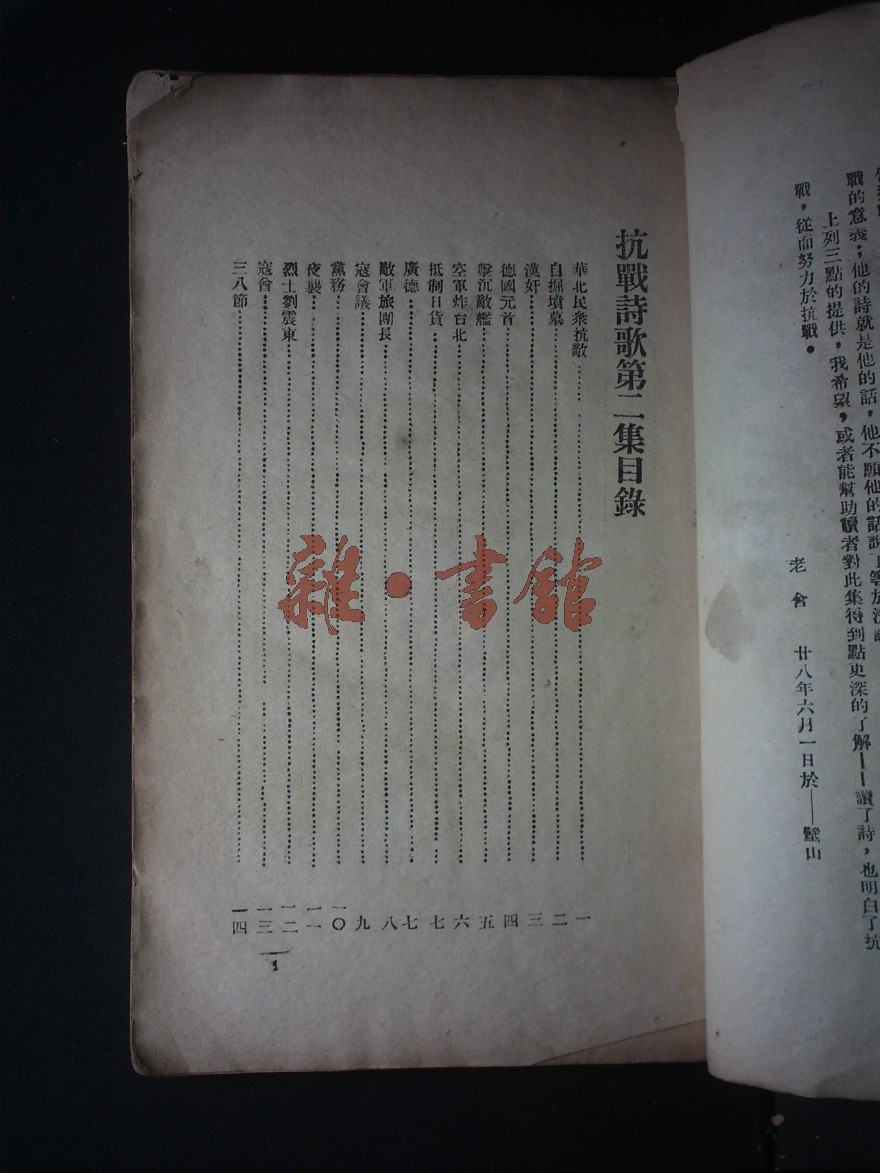 戰的意義；他的詩就是他的話，他不願他的話說
上列三點的提供，我希望，或者能幫助讀者對此集得到點更深的了解——讀了詩，也明白了抗
戰，從而努力於抗戰。
老舍 廿八年六月一日於——璧山
抗戰詩歌第二集目錄
華北民衆抗敵……一
自掘墳墓……二
漢奸……三
德國元首……四
擊沉敵艦……五
空軍炸台北……六
抵制日貨……七
廣德……七
敵軍旅團長……八
寇會議……九
黨務……一〇
夜襲……一一
烈士劉震東……一二
寇會……一三
三八節……一四
1
雜·書館